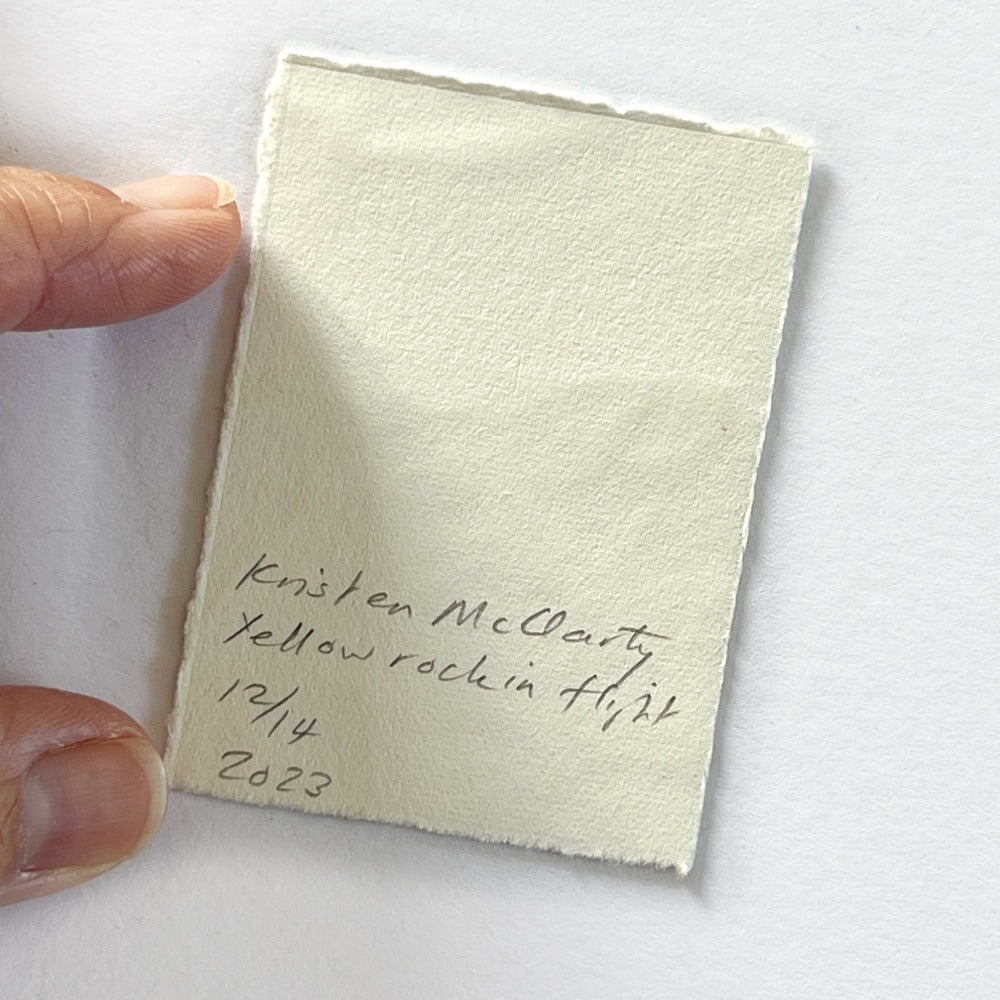 Kristen McClarty
Yellow rock in flight
12/14
2023